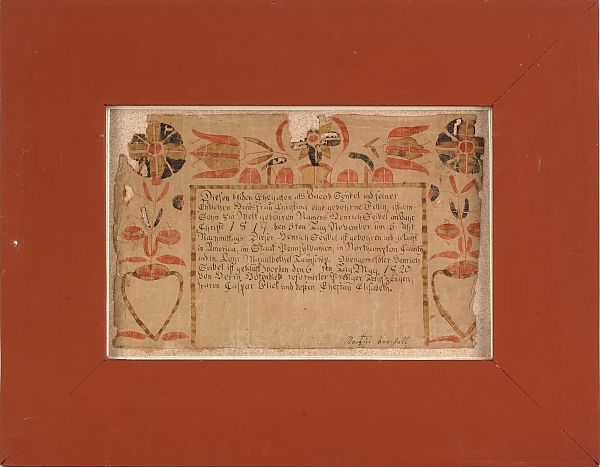 Diesen beiden Ehegatten als Jacob Seybel und seiner
Ehlichen Haus frau Christina eine gebohrne ist ein
Sohn zur Welt gebohren Namens Henrich Seibel im Jahr
Christi 1819 den 3ten Tag November um 6 Uhr
Nachmittags. Dieser Henrich Seybel ist gebohren und getauft
in America, im Staat Pensilvanien, in Northampton County
und in Taunschip. Obengemelder Henrich
Seibel ist getauft worden den 6 ten Tag May, 1820
von Herrn reformirter Prediger Taufzeugen,
waren Caspar und deßen Ehefrau Elisabeth.
Martin